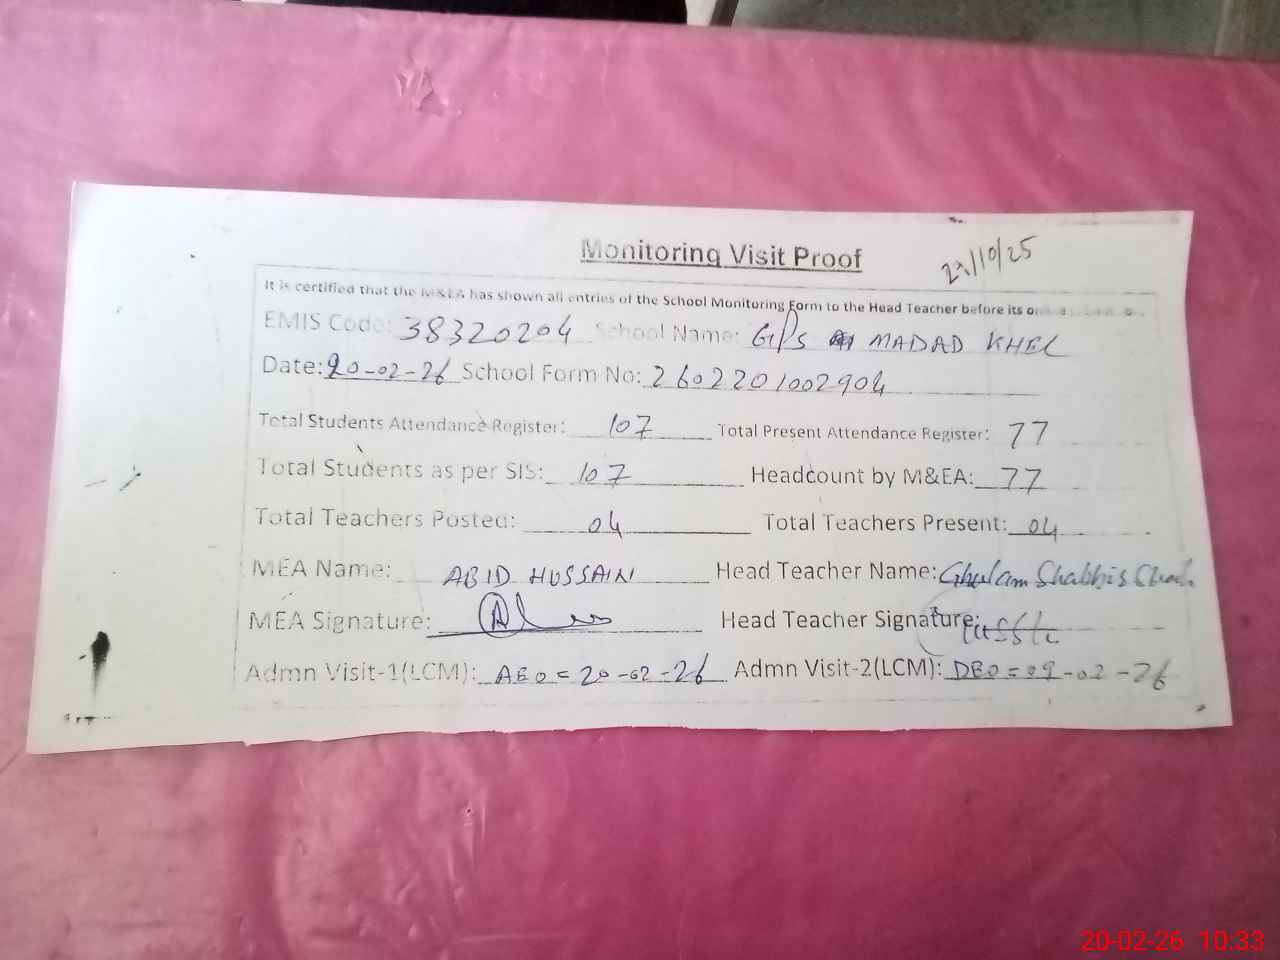 Monitoring Visit Proof
/10/25
It is certified that the M&EA has shown all entries of the School Monitoring Form to the Head Teacher before its
EMIS Code: 38320204 School Name: GPS MADAD KHEL
Date: 20-02-26 School Form No: 2602201002904
Total Students Attendance Register: 107 Total Present Attendance Register: 77
Total Students as per SIS: 107 Headcount by M&EA: 77
Total Teachers Posted: 04 Total Teachers Present: 04
MEA Name: ABID HUSSAIN Head Teacher Name: Ghulam Shabbir Shah
MEA Signature: Head Teacher Signature:
Admn Visit-1(LCM): AEO = 20-02-26 Admn Visit-2(LCM): DEO = 09-02-26
20-02-26 10:33